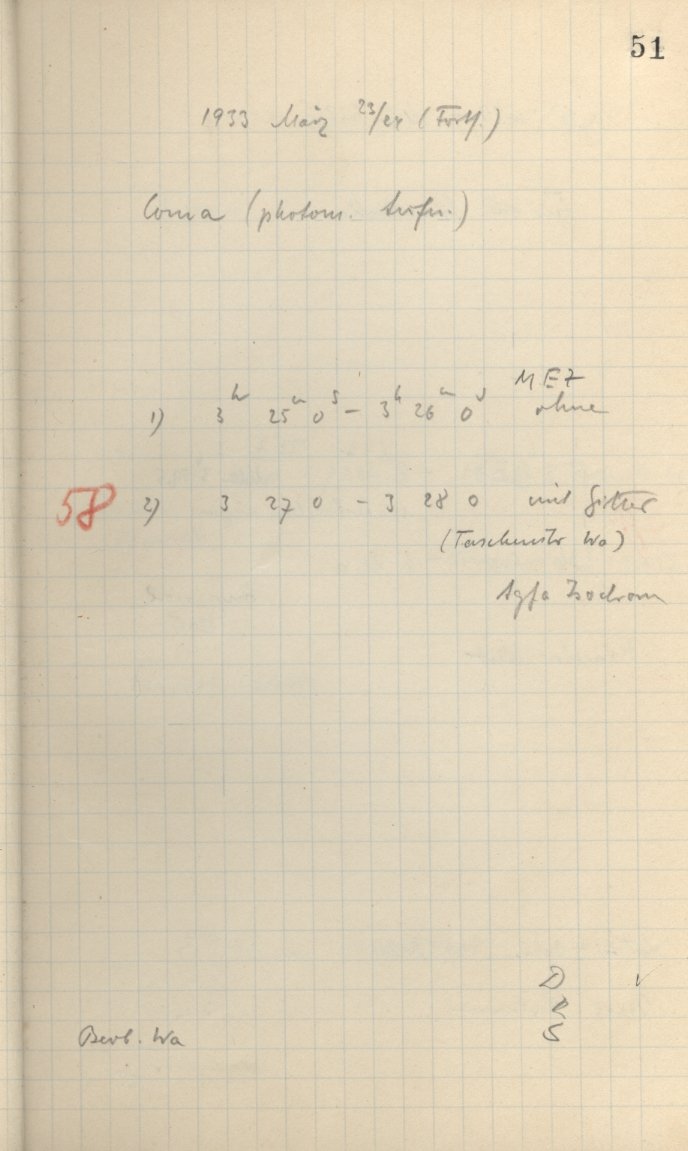 51
1933 März 23/24 (Fortf.)
Coma (photom. Aufn.)
MEZ
1) 3h 25m 0s – 3h 26m 0s ohne
58 2) 3 27 0 – 3 28 0 mit Gitter
(Taschenuhr Wa)
Agfa Isochrom
D v
R
Beob. Wa S